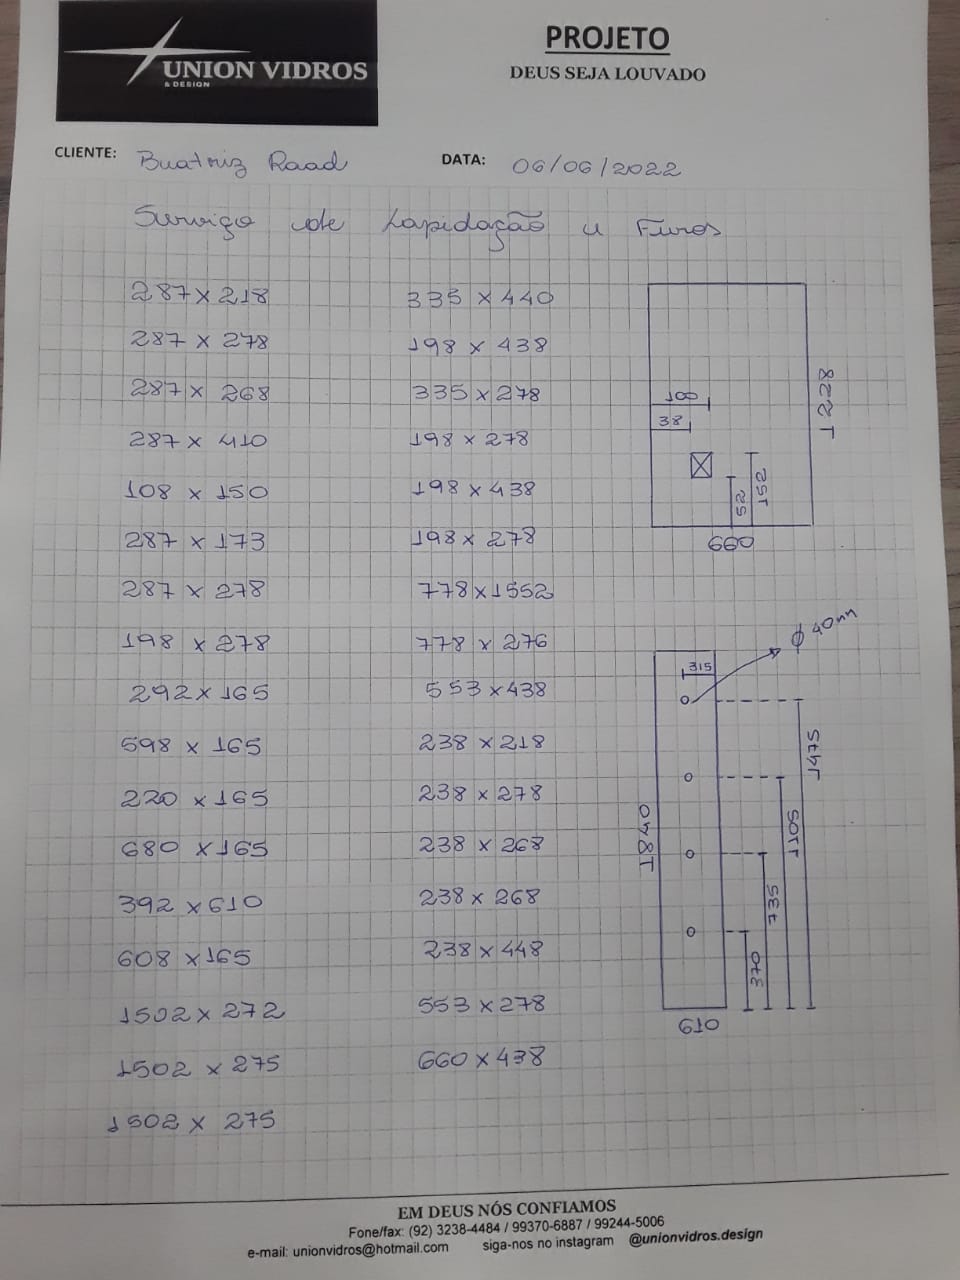 UNION VIDROS
& DESIGN
PROJETO
DEUS SEJA LOUVADO
CLIENTE: Beatriz Raad
DATA: 06/06/2022
Serviço de Lapidação e Furos
287 x 218
287 x 278
287 x 268
287 x 410
108 x 150
287 x 173
287 x 278
198 x 278
292 x 165
598 x 165
220 x 165
680 x 165
392 x 610
608 x 165
1502 x 272
1502 x 275
1502 x 275
335 x 440
198 x 438
335 x 278
198 x 278
198 x 438
198 x 278
778 x 1552
778 x 276
553 x 438
238 x 218
238 x 278
238 x 268
238 x 268
238 x 448
553 x 278
660 x 438
100
38
1228
52
152
660
φ 40mm
315
1840
1475
1105
735
370
610
EM DEUS NÓS CONFIAMOS
Fone/fax: (92) 3238-4484 / 99370-6887 / 99244-5006
e-mail: unionvidros@hotmail.com siga-nos no instagram @unionvidros.design